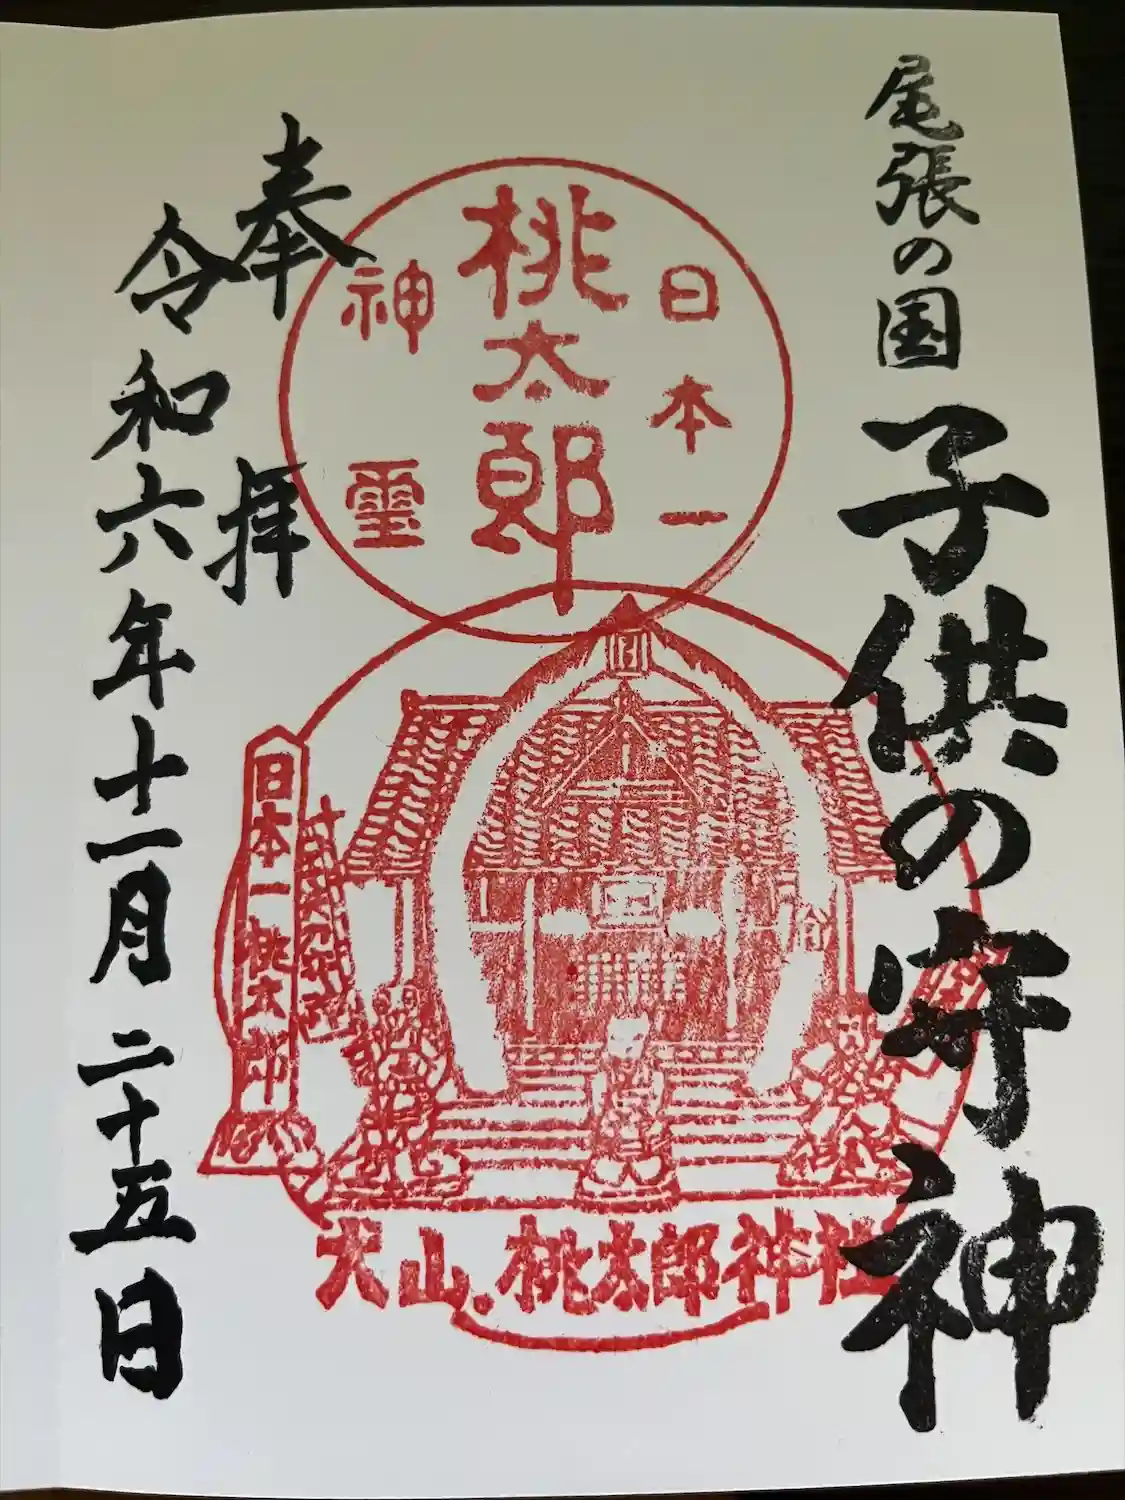 尾張の国
子供の守神
日本一
桃太郎
神霊
奉拝
令和六年十一月二十五日
日本一桃太郎
犬山.桃太郎神社